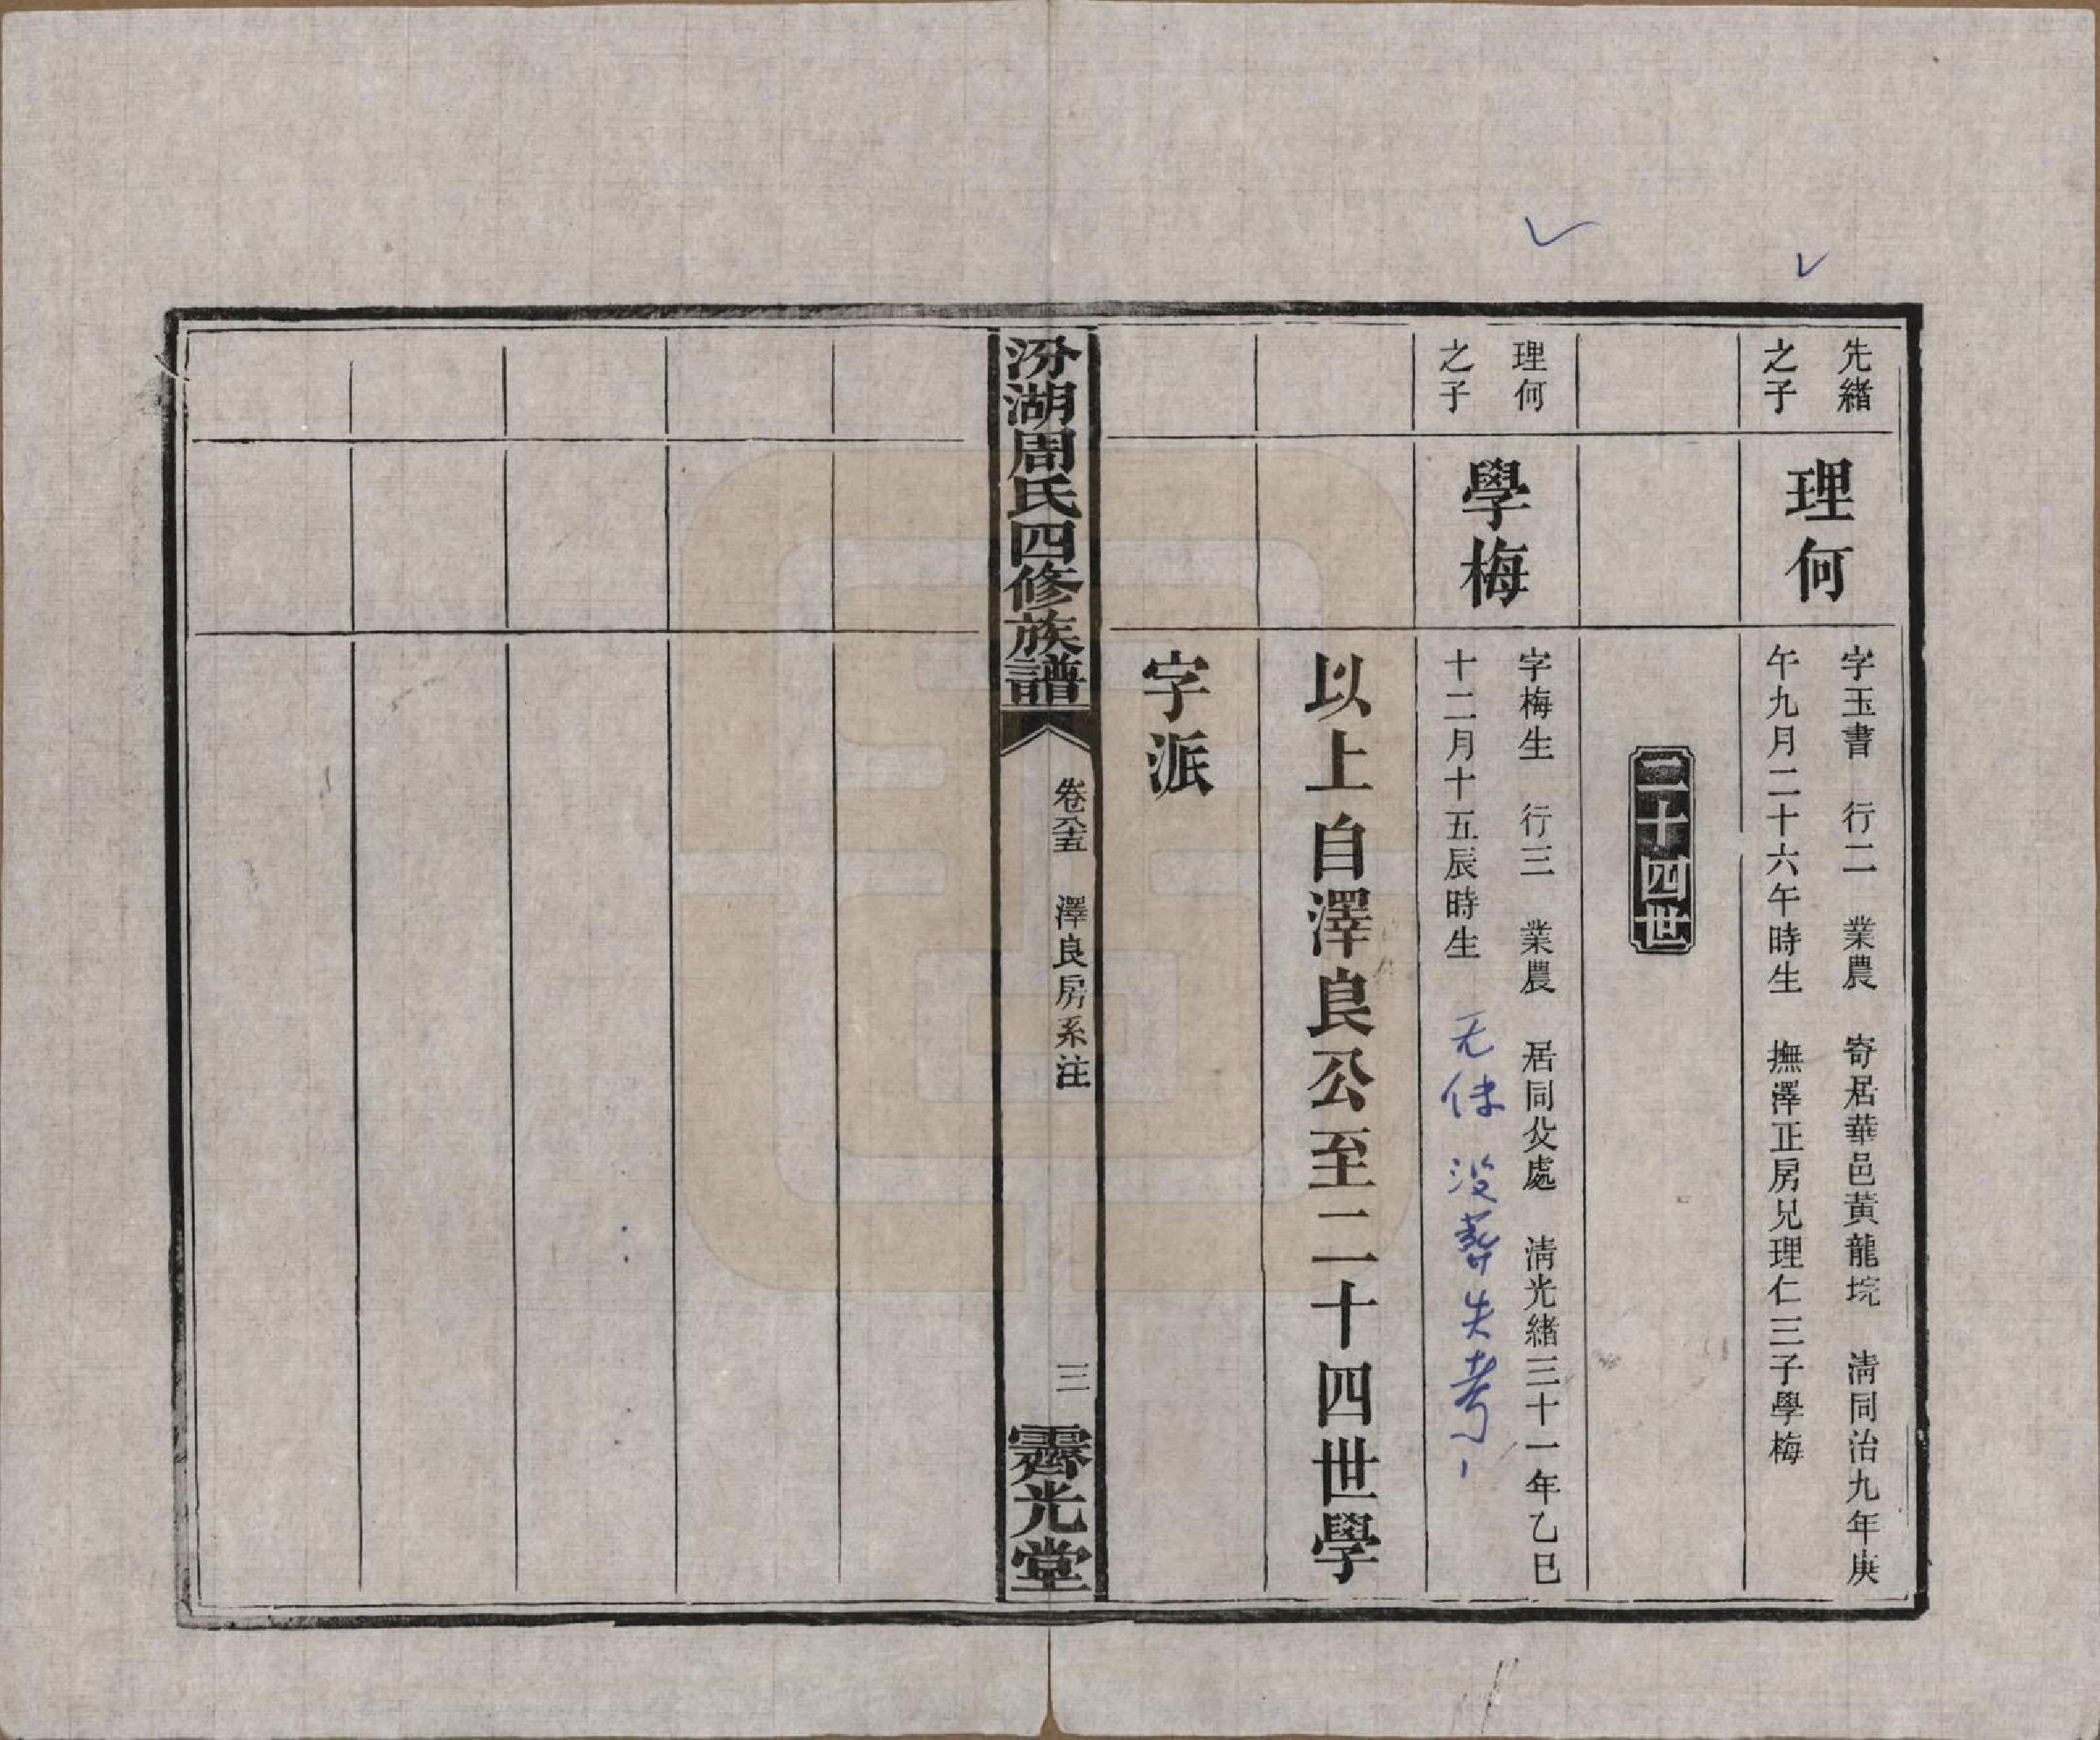 先緒
之子
理何
字玉書　行二　業農　寄居華邑黃龍垸　清同治九年庚
午九月二十六午時生　撫澤正房兄理仁三子學梅
二十四世
理何
之子
學梅
字梅生　行三　業農　居同父處　清光緒三十一年乙巳
十二月十五辰時生　无传 没葬失考
以上自澤良公至二十四世學
字派
汾湖周氏四修族譜
卷八十五　澤良房系注
三
霽光堂